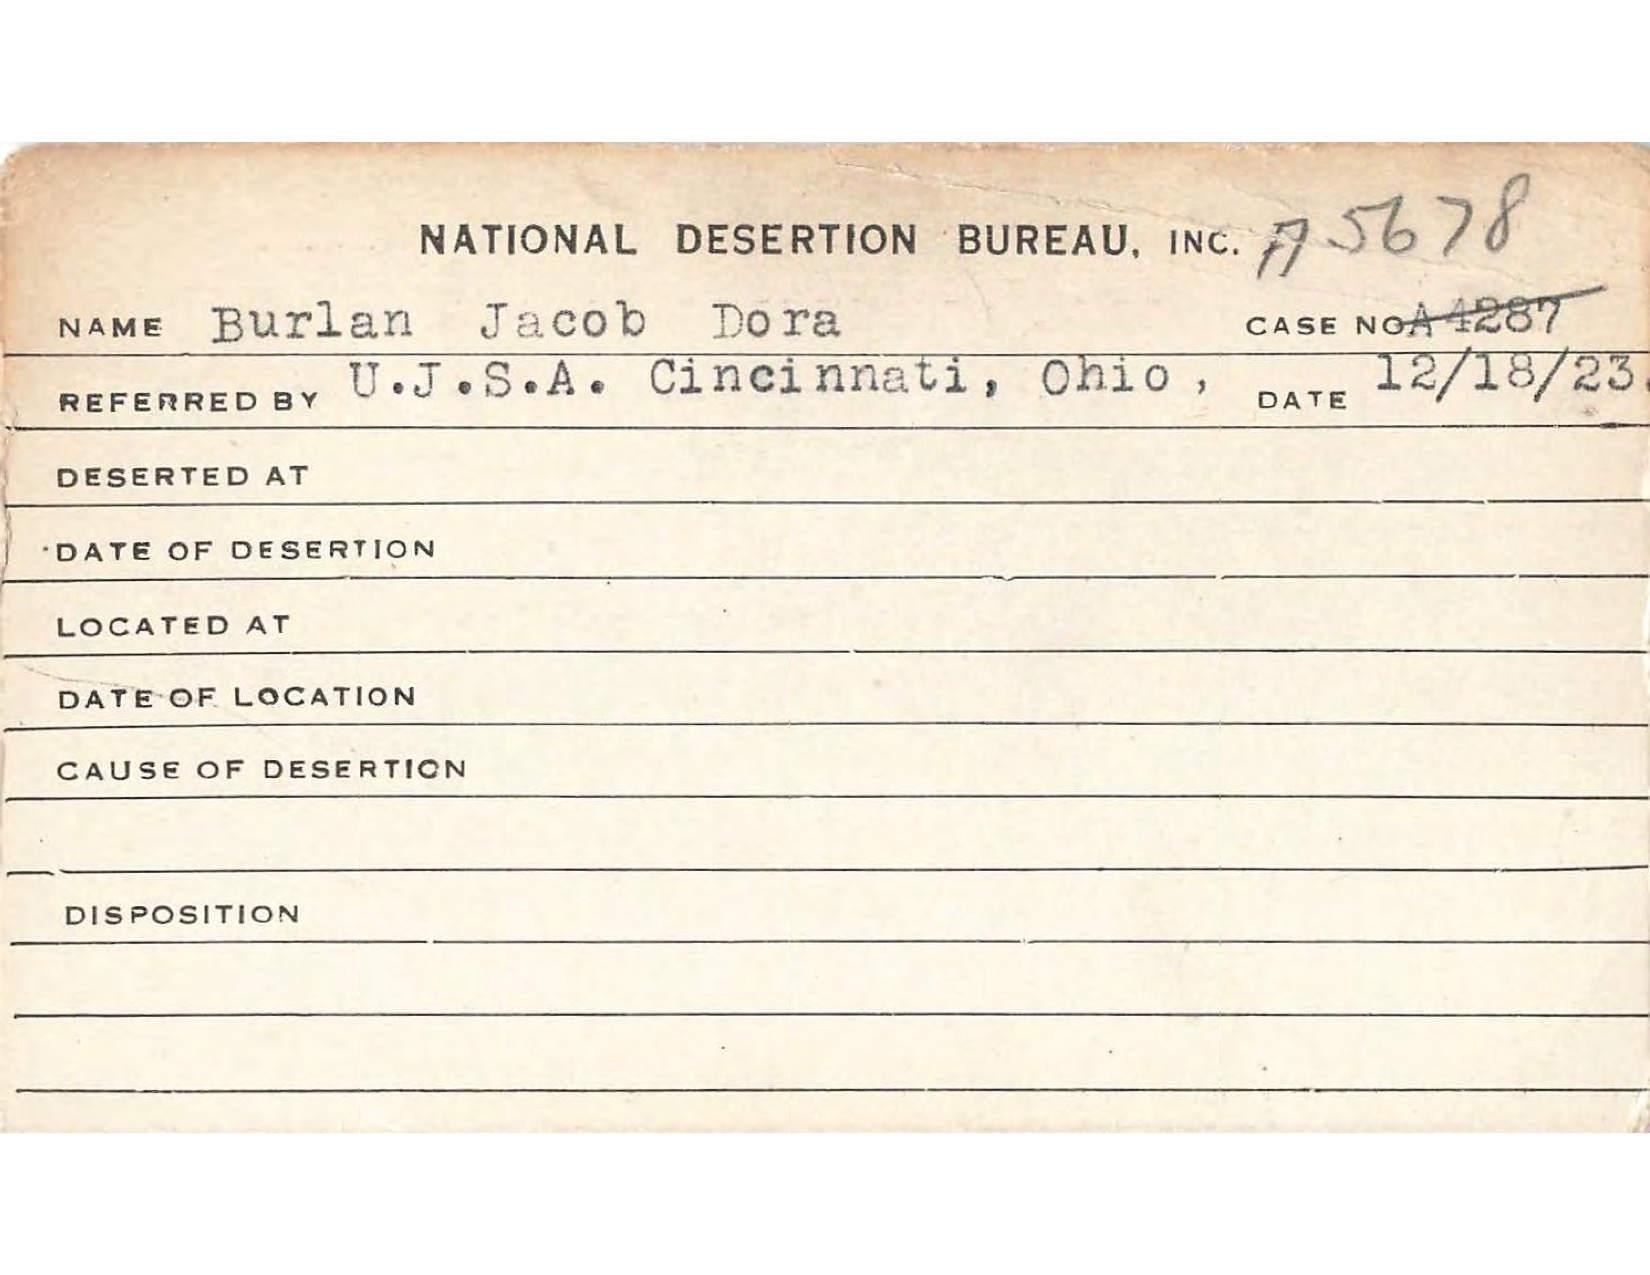 NATIONAL DESERTION BUREAU, INC. A 5678
NAME Burlan Jacob Dora CASE NO. A 4287
REFERRED BY U.J.S.A. Cincinnati, Ohio, DATE 12/18/23.
DESERTED AT
DATE OF DESERTION
LOCATED AT
DATE OF LOCATION
CAUSE OF DESERTION
DISPOSITION